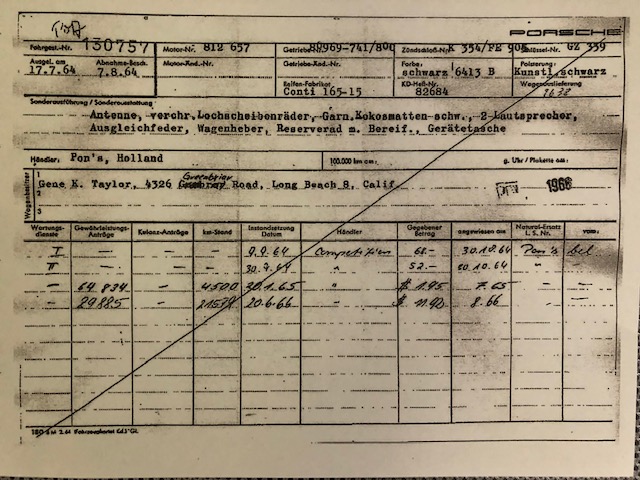 PORSCHE
Fahrgest.-Nr. 130757 Motor-Nr. 812 657 Getriebe 80969-741/80 Zündschloß-Nr. K 354/FE 908 Schlüssel-Nr. GZ 339
Ausgel. am 17.7.64 Abnahme-Besch. 7.8.64 Motor-Änd.-Nr. Getriebe-Änd.-Nr. Farbe: schwarz 6413 B Polsterung: Kunstl. schwarz
Reifen-Fabrikat Conti 165-15 KD-Heft-Nr. 82684 Wagenauslieferung
Sonderausführung / Sonderausstattung
Antenne, verchr. Lochscheibenräder, Garn. Kokosmatten schw., 2 Lautsprecher,
Ausgleichfeder, Wagenheber, Reserverad m. Bereif., Gerätetasche
Händler: Pon's, Holland 100.000 km am: g. Uhr / Plakette am:
Wagenbesitzer
1 Greenbriar
2 Gene K. Taylor, 4326 Road, Long Beach 8, Calif 1966
3
Wartungs-dienste Gewährleistungs-Anträge Kulanz-Anträge km-Stand Instandsetzung Datum Händler Gegebener Betrag angewiesen am Natural-Ersatz L. S. Nr. vom:
I - - - 9.9.64 Competition 68.- 30.10.64 Pon's del
II - - - 30.9.64 " 52.- 30.10.64
- 64 834 - 4500 30.1.65 " $ 1.95 7.65 - -
- 29885 - 21539 20.6.66 " $ 11.90 8.66 - -